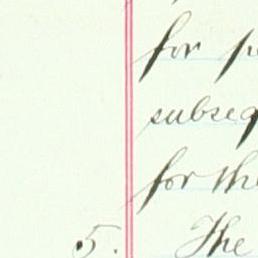 for
subseq
for the
5. The